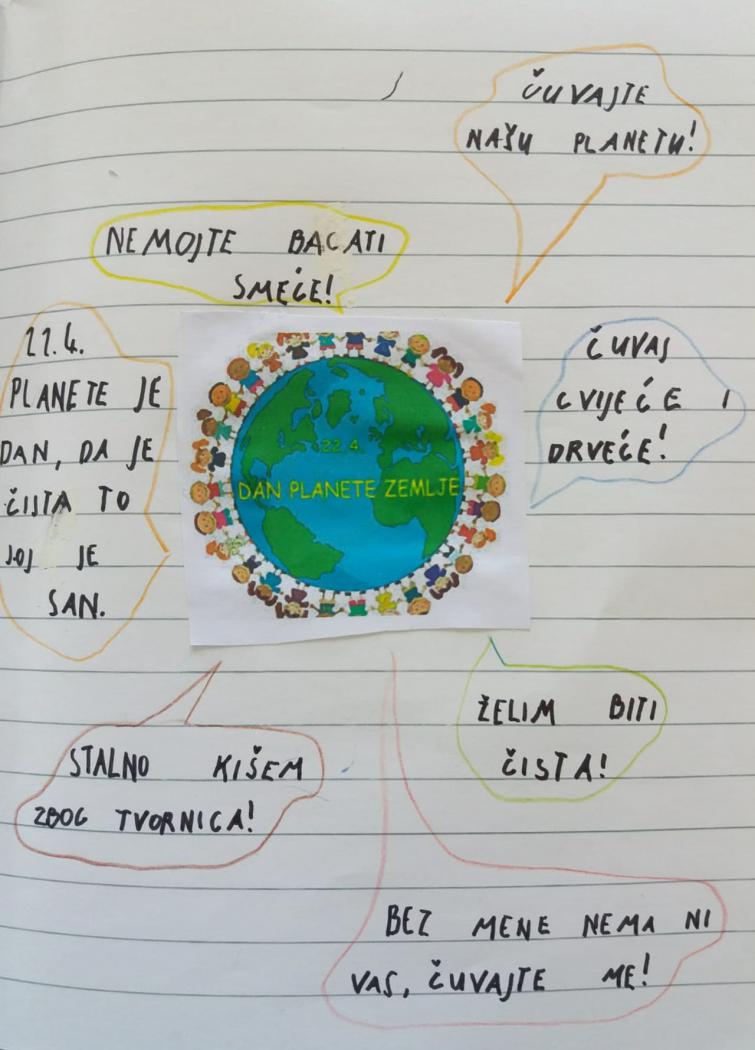 ČUVAJTE
NAŠU PLANETU!
NEMOJTE BACATI
SMEĆE!
22.4.
PLANETE JE
DAN, DA JE
ČISTA TO
JOJ JE
SAN.
22.4.
DAN PLANETE ZEMLJE
ČUVAJ
CVIJEĆE I
DRVEĆE!
STALNO KIŠEM
ZBOG TVORNICA!
ŽELIM BITI
ČISTA!
BEZ MENE NEMA NI
VAS, ČUVAJTE ME!